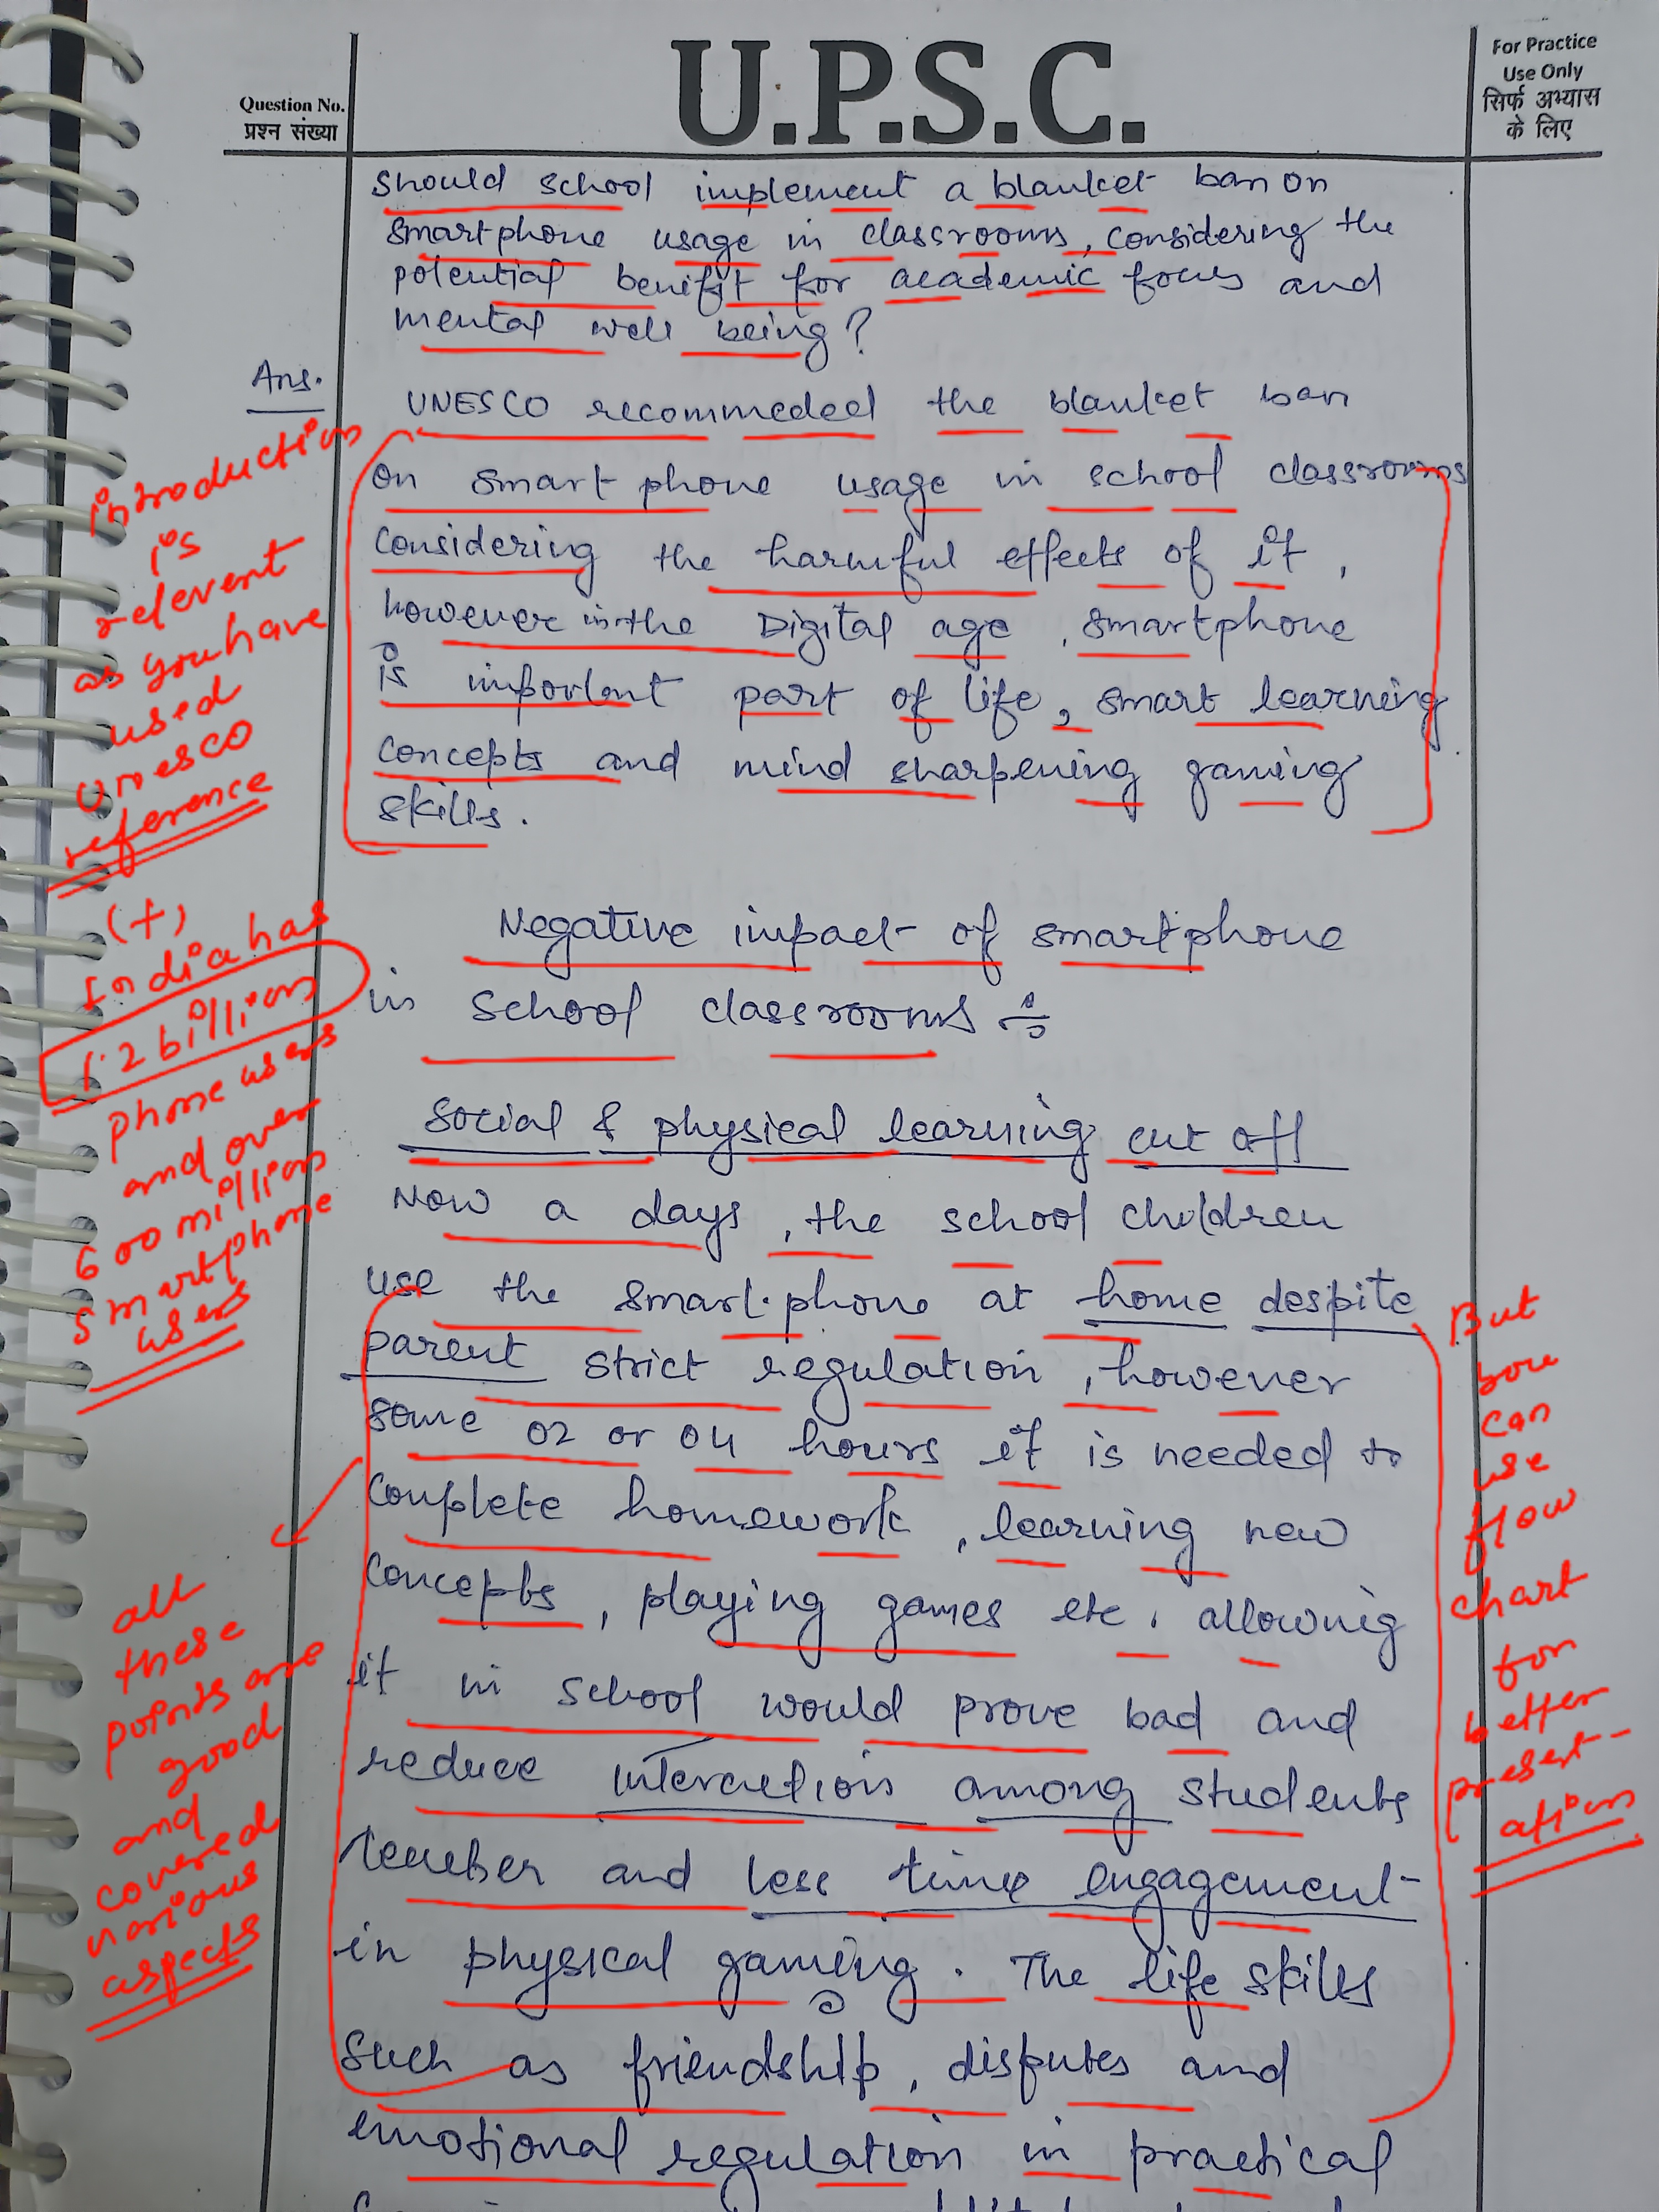 U.P.S.C.
Question No.
प्रश्न संख्या
For Practice
Use Only
सिर्फ अभ्यास
के लिए
Should school implement a blanket ban on
smartphone usage in classrooms, considering the
potential benifit for academic focus and
mental well being?
Ans.
UNESCO recommeded the blanket ban
on smart phone usage in school classrooms
considering the harmful effects of it,
however in the Digital age, smartphone
is important part of life, smart learning
concepts and mind sharpening gaming
skills.
introduction
is
relevent
as you have
used
unesco
reference
(+)
India has
1.2 billion
phone users
and over
600 million
smartphone
users
Negative impact of smartphone
in school classrooms :-
Social & physical learning cut off
Now a days, the school children
use the smart phone at home despite
parent strict regulation, however
some 02 or 04 hours it is needed to
complete homework, learning new
concepts, playing games etc. allownig
it in school would prove bad and
reduce interaction among students
teacher and less time engagement
in physical gaming. The life skills
such as friendship, disputes and
emotional regulation in practical
all
these
points are
good
and
covered
various
aspects
But
you
can
use
flow
chart
for
better
present-
ation